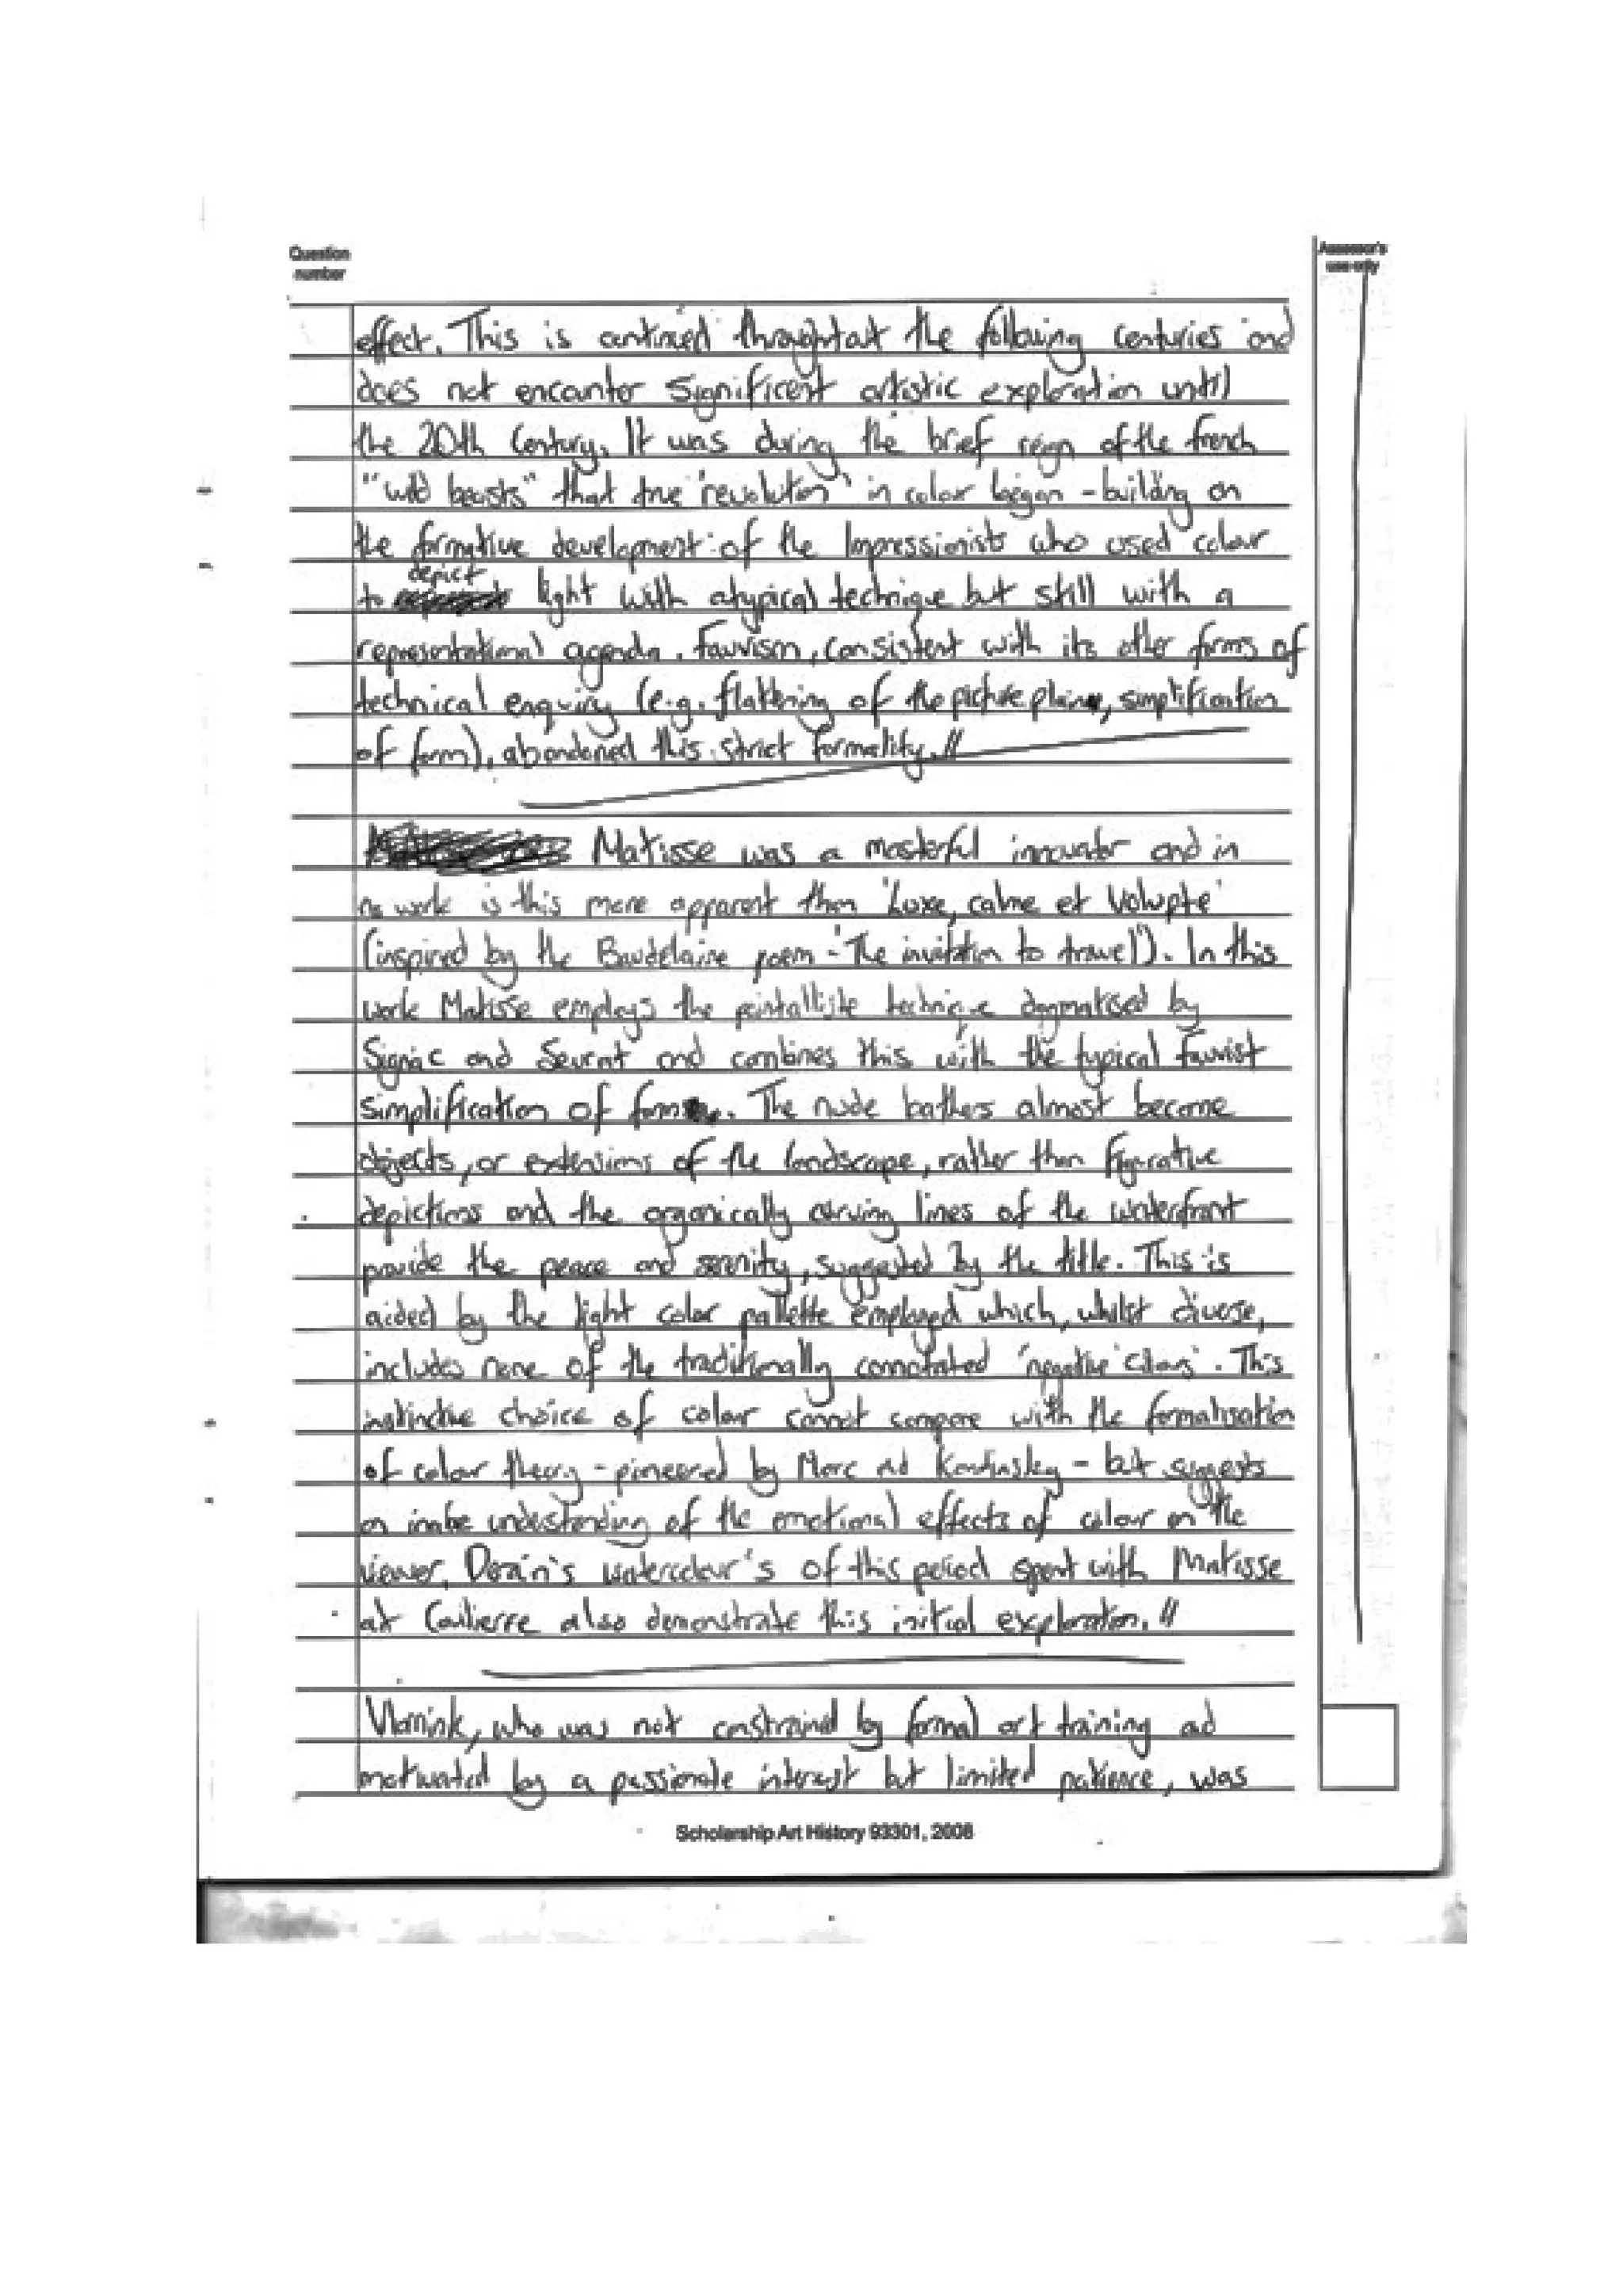 Question
number
Assessor's
use only
effect. This is continued throughtout the following centuries and
does not encounter significent artistic exploration until
the 20th Century. It was during the brief reign of the french
"wild beasts" that true 'revolution' in colour began - building on
the formative development of the Impressionists who used colour
depict
to light with atypical technique but still with a
representational agenda. Fauvism, consistent with its other forms of
technical enquiry (e.g. flattening of the picture plane, simplification
of form), abandoned this strict formality.//
Matisse was a masterful innovator and in
no work is this more apparent than 'Luxe, calme et Volupte'
(inspired by the Baudelaire poem - 'The invitation to travel'). In this
work Matisse employs the pointalliste technique dogmatised by
Signac and Seurat and combines this with the typical fauvist
simplification of form. The nude bathers almost become
objects, or extensions of the landscape, rather than figurative
depictions and the organically curving lines of the waterfront
provide the peace and serenity, suggested by the title. This is
aided by the light color pallette employed which, whilst diverse,
includes none of the traditionally connotated 'negative' colours'. This
instinctive choice of colour cannot compare with the formalisation
of colour theory - pioneered by Marc and Kandinsky - but suggests
an inate understanding of the emotional effects of colour on the
viewer. Derain's watercolour's of this period spent with Matisse
at Coullierre also demonstrate this initial exploration.//
Vlamink, who was not constrained by formal art training and
motivated by a passionate interest but limited patience, was
Scholarship Art History 93301, 2008